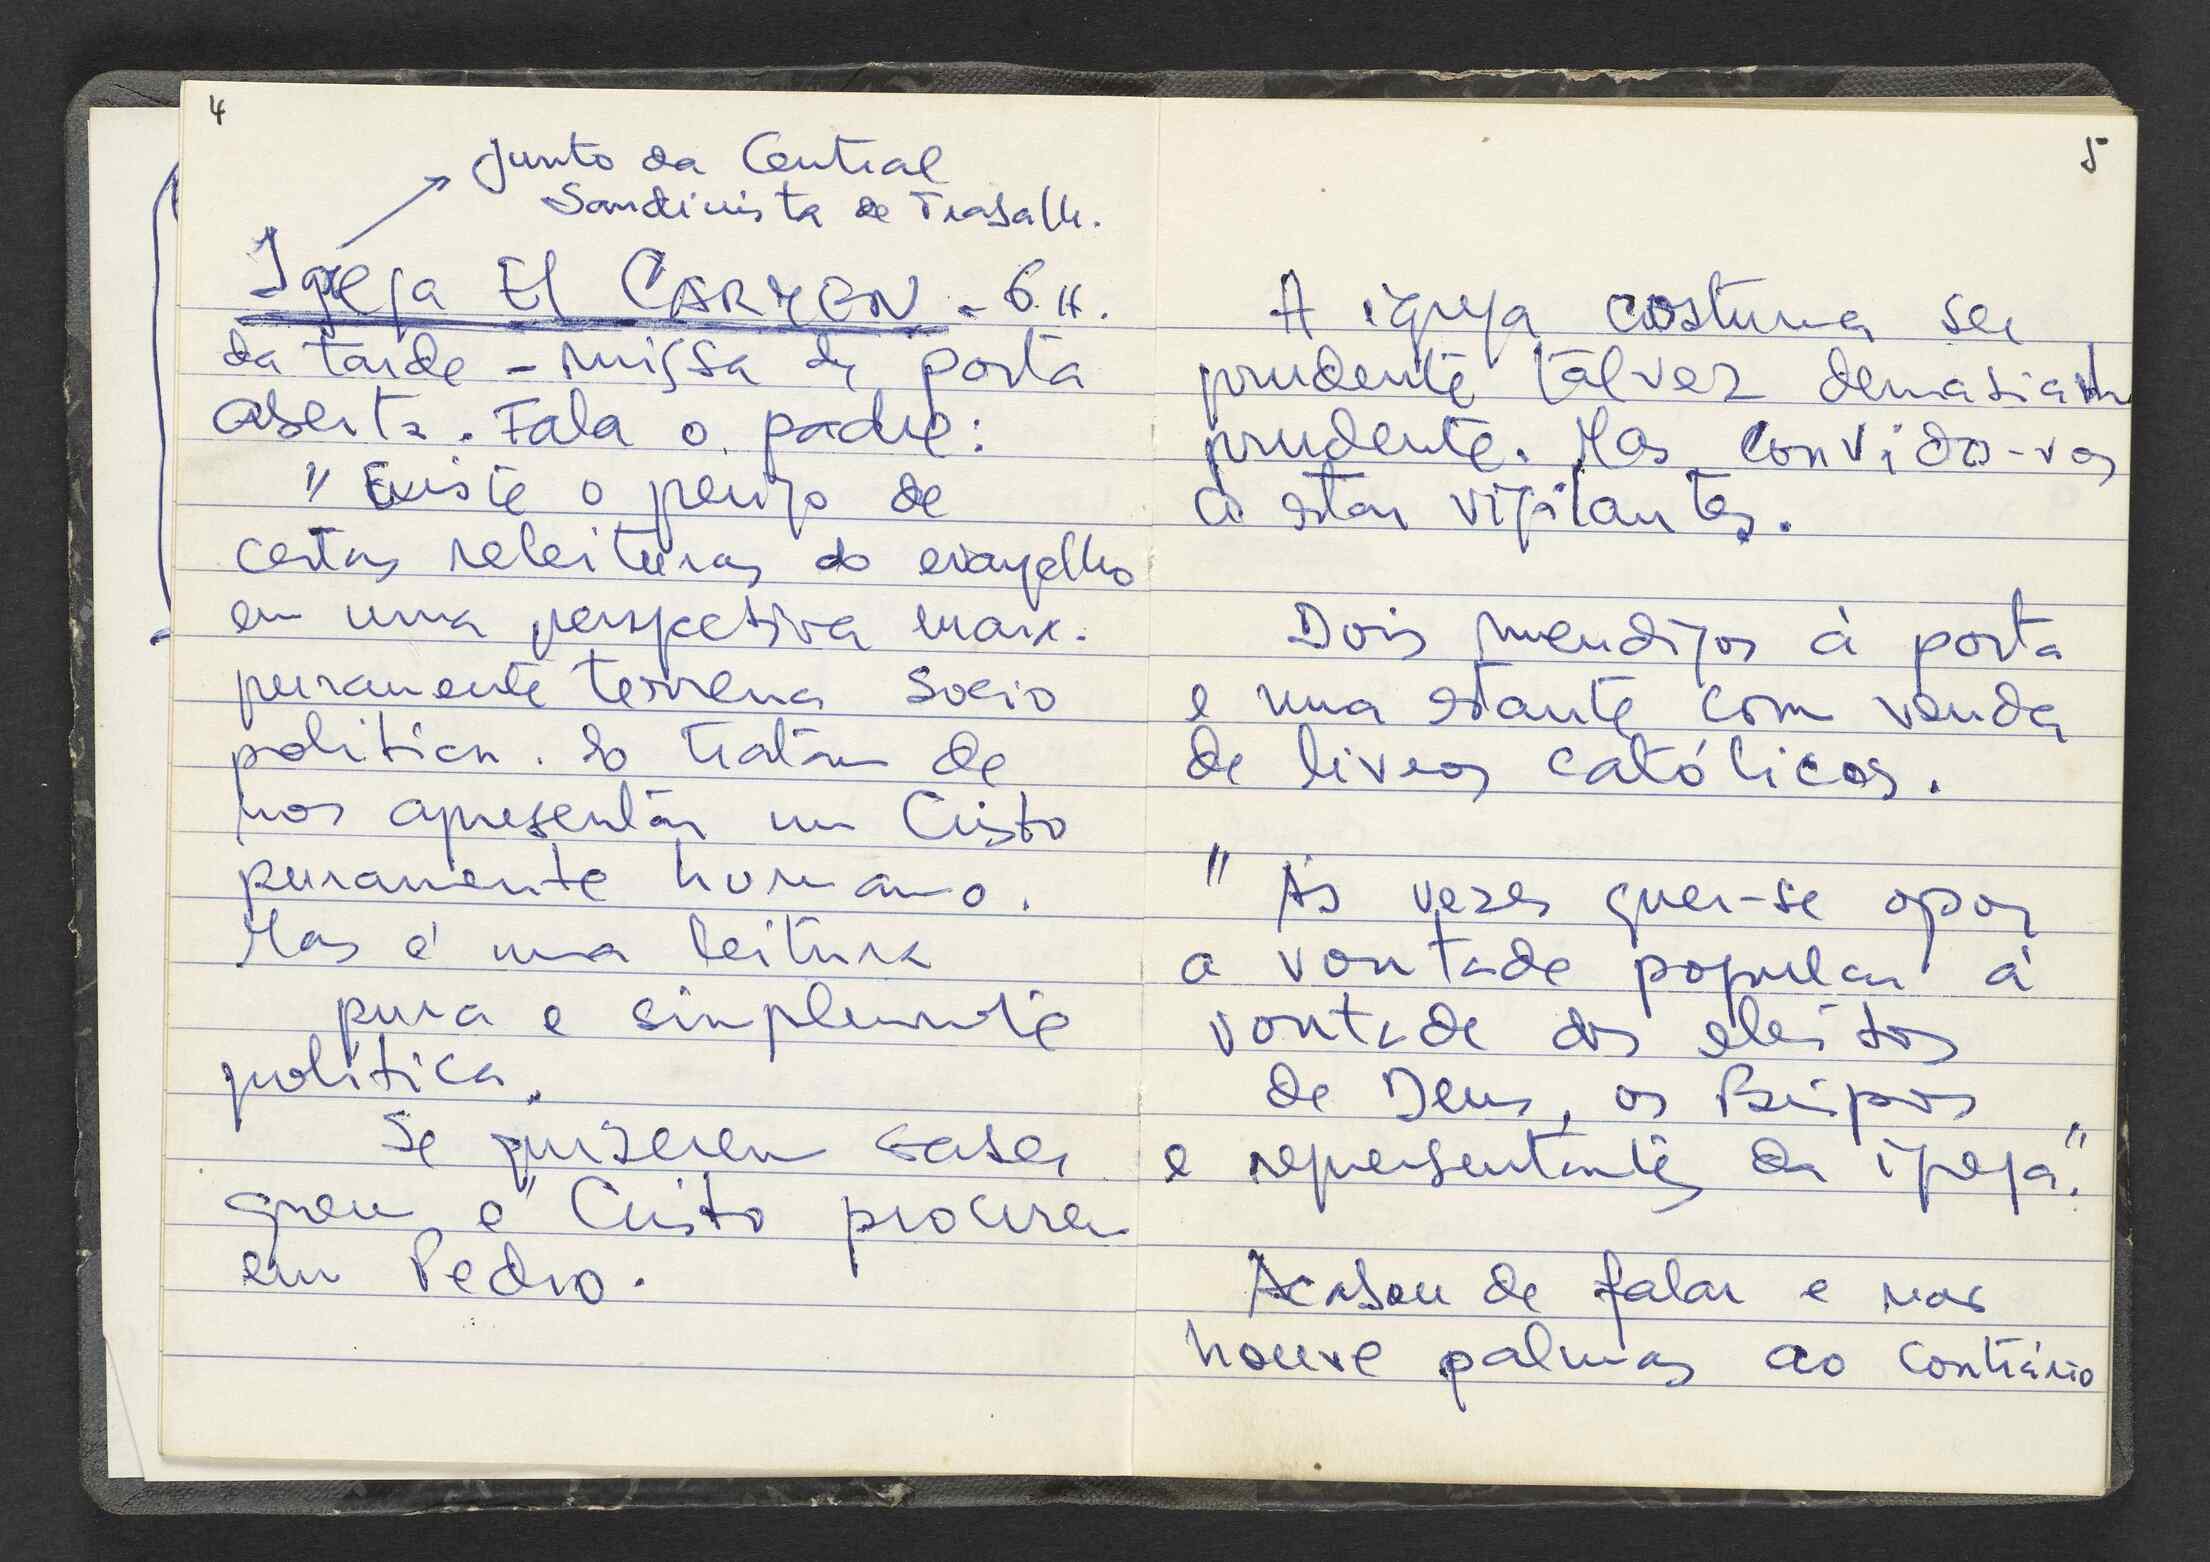 4
junto da Central
Sandinista de Trabalh.
Igreja El CARMEN - 6 H.
da tarde - missa de porta
aberta. Fala o padre:
"Existe o perigo de
certas releituras do evangelho
em uma perspectiva marx.
puramente terrena socio
politica. So tratam de
nos apresentar um Cristo
puramente humano.
Mas é uma leitura
pura e simplesmente
política.
Se quiserem saber
quem é Cristo procurem
em Pedro.
5
A igreja costuma ser
prudente talvez demasiado
prudente. Mas convido-vos
a estar vigilantes.
Dois mendigos à porta
e uma estante com venda
de livros católicos.
"Às vezes quer-se opor
a vontade popular à
vontade dos eleitos
de Deus, os Bispos
e representantes da igreja".
Acabou de falar e nao
houve palmas ao contrário